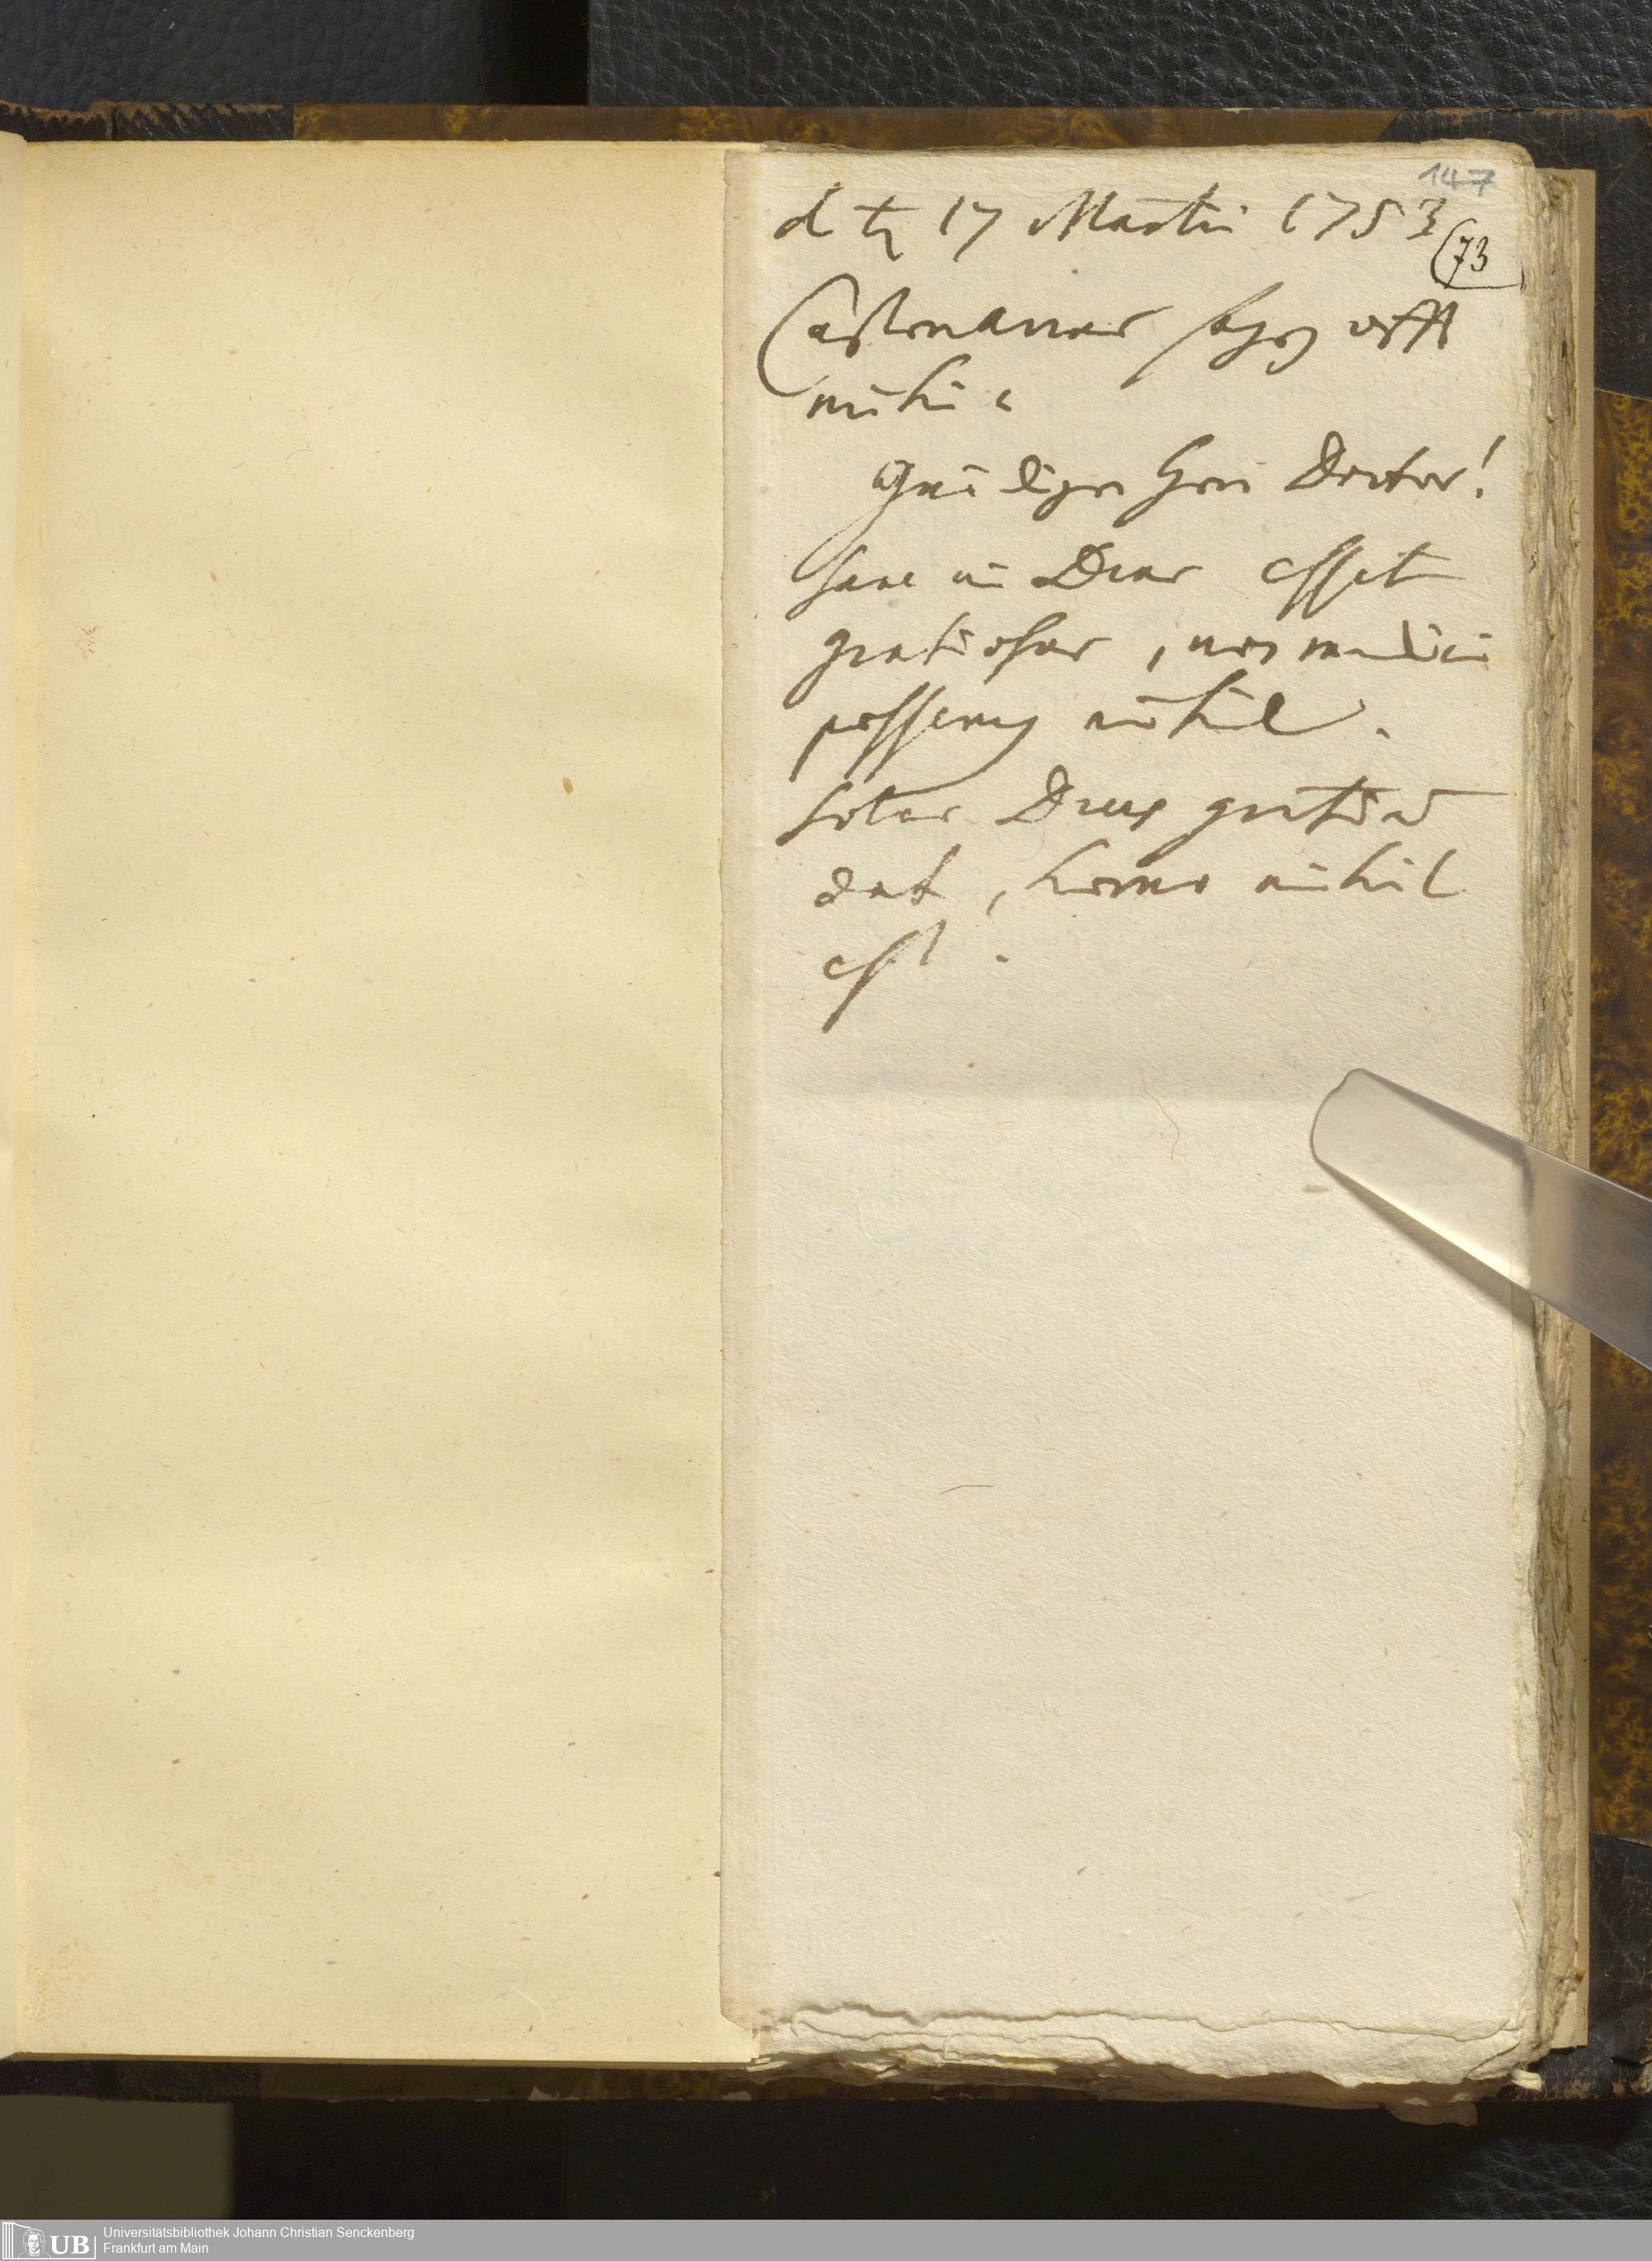 147
d ♄ 17 Martii 1753
73
Castenauer sagen offt
mihi:
Gnädiger Herr Doctor!
sane ni Deus esset
gratiosus, nos medici
possemus nihil.
solus Deus gratiam
dat, homo nihil
est.
UB
Universitätsbibliothek Johann Christian Senckenberg
Frankfurt am Main